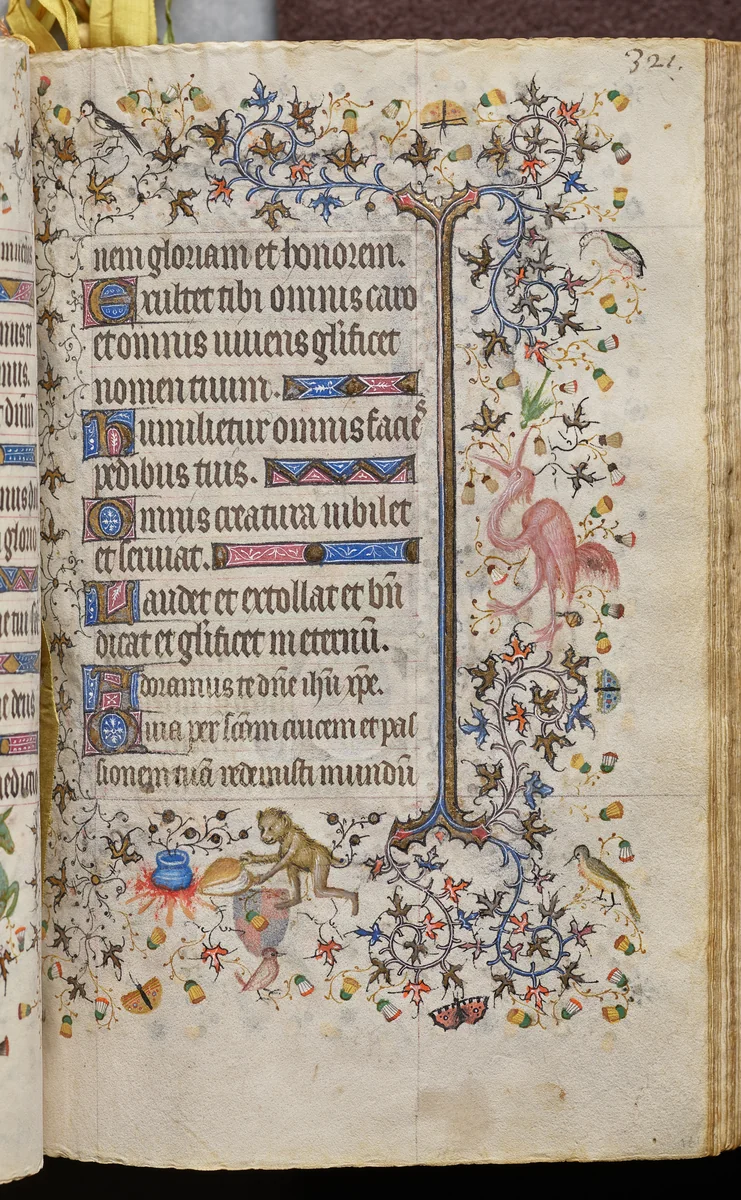 321.
nem gloriam et honorem.
Exultet tibi omnis caro
et omnis uiuens gl̃ificet
nomen tuum.
Humilietur omnis facies
pedibus tuis.
Omnis creatura iubilet
et seruiat.
Laudet et extollat et bñ
dicat et gl̃ificet in eternũ.
Adoramus te dñe ihũ xp̃e.
Quia per sc̃am crucem et pas
sionem tuã redemisti mundũ